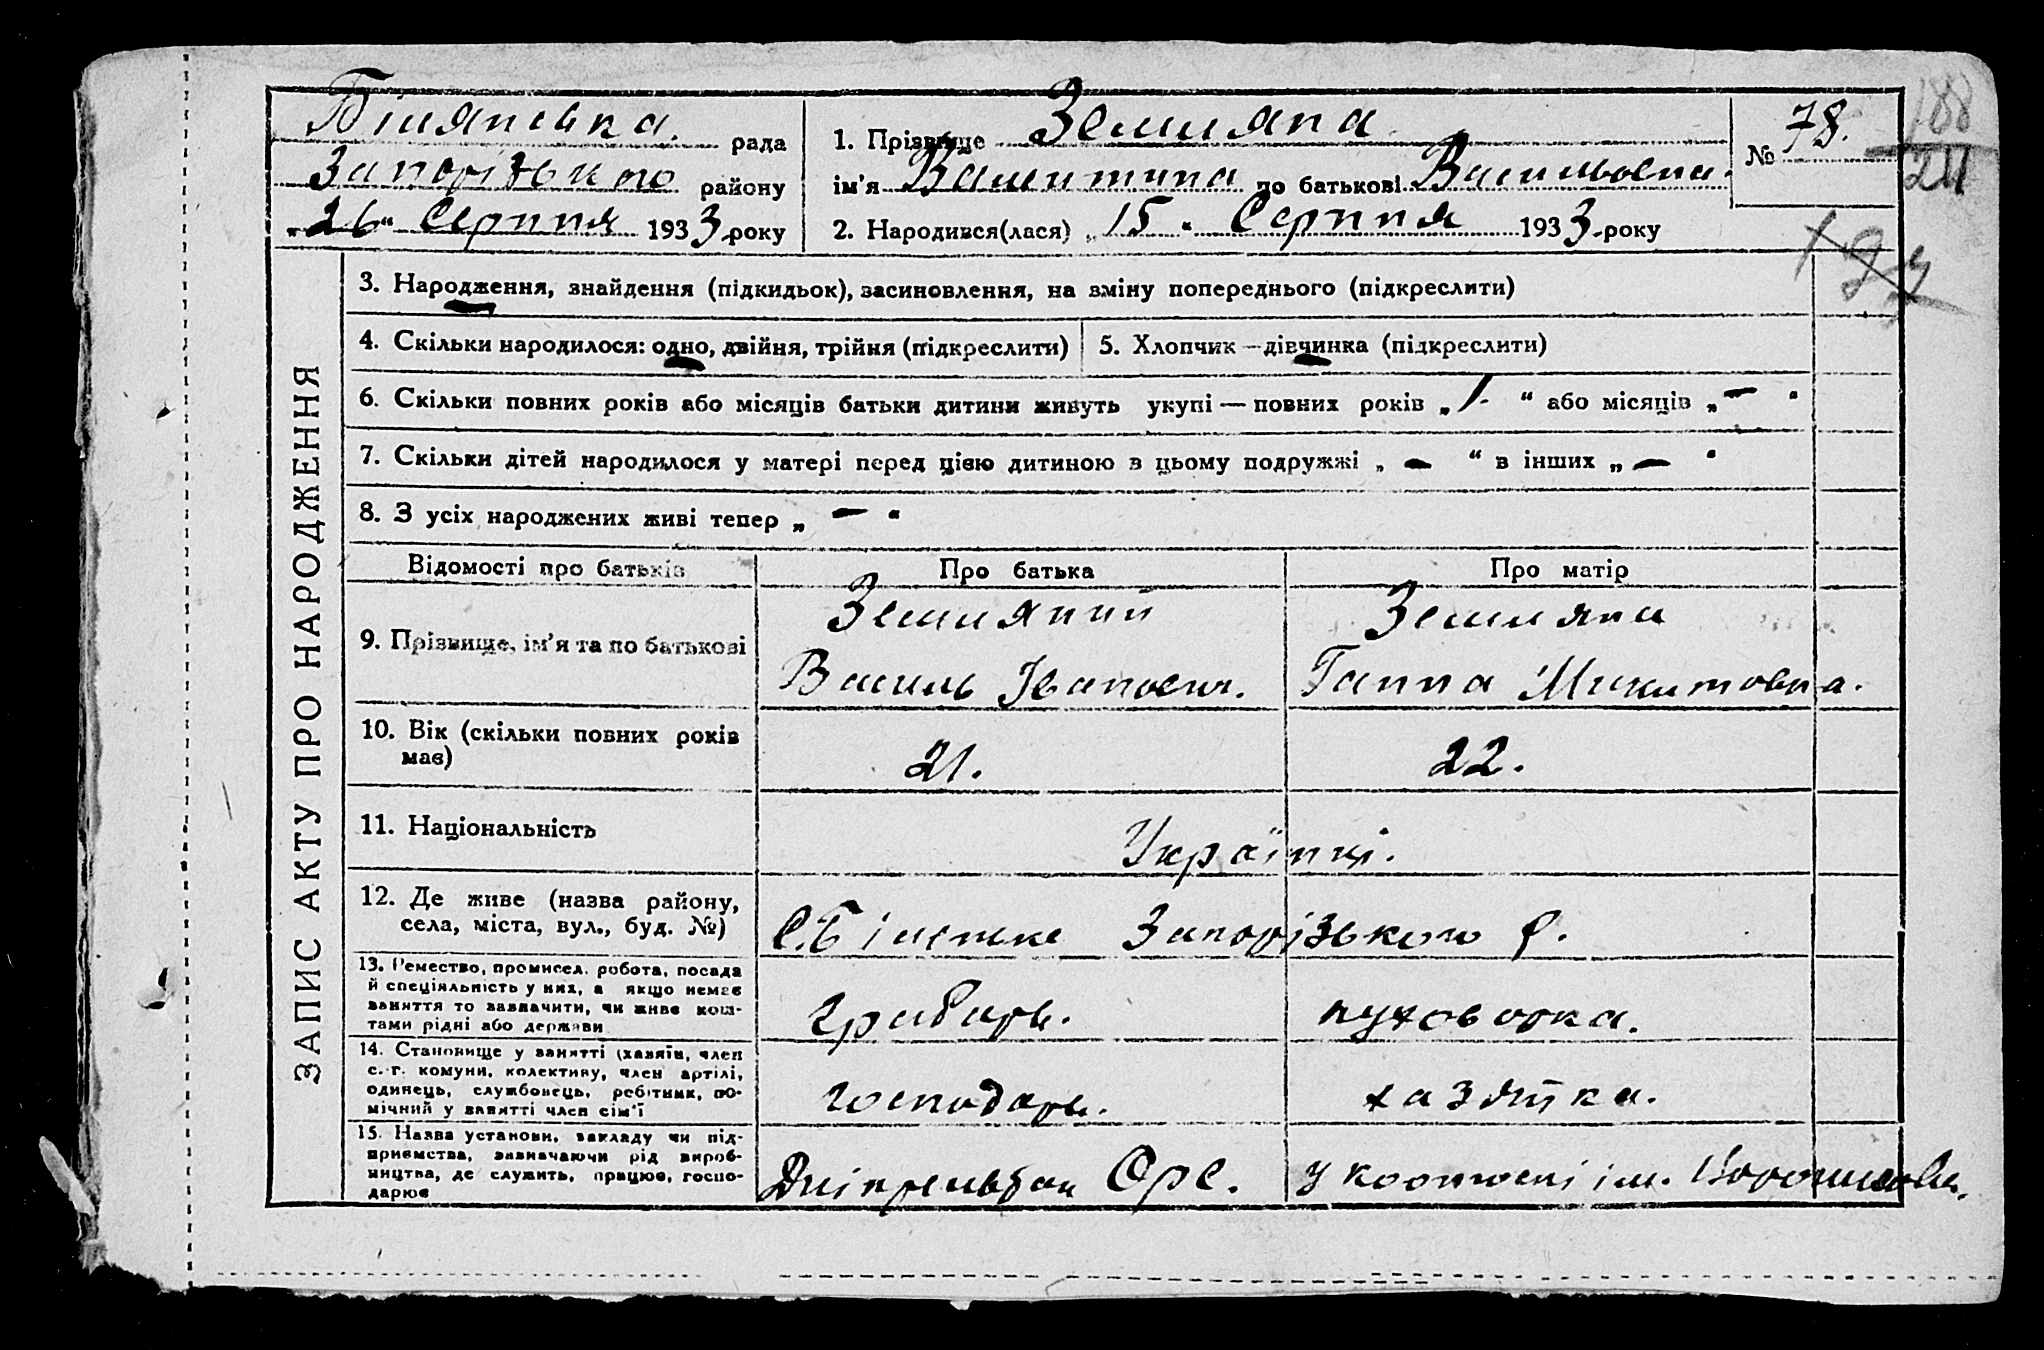 Біляпська рада
Запорізького району
"26" Серпня 1933 року
1. Прізвище Земляна
ім'я Валентина по батькові Васильовна.
2. Народився(лася) "15" Серпня 1933 року
№ 78.
188
211
ЗАПИС АКТУ ПРО НАРОДЖЕННЯ
3. Народження, знайдення (підкидьок), засиновлення, на зміну попереднього (підкреслити)
4. Скільки народилося: одно, двійня, трійня (підкреслити)
5. Хлопчик — дівчинка (підкреслити)
6. Скільки повних років або місяців батьки дитини живуть укупі — повних років „1." або місяців „—"
7. Скільки дітей народилося у матері перед цією дитиною в цьому подружжі „—" в інших „—"
8. З усіх народжених живі тепер „—"
Відомості про батьків
Про батька
Про матір
9. Прізвище, ім'я та по батькові
Земляний
Василь Іванович.
Земляна
Ганна Микитовна.
10. Вік (скільки повних років має)
21.
22.
11. Національність
Українці.
12. Де живе (назва району,
села, міста, вул., буд. №)
Запорізького р.
13. Ремество, промисел, робота, посада
й спеціяльність у них, а якщо немає
заняття то зазначити, чи живе кош-
тами рідні або держави
грабарь.
14. Становище у занятті (хазяїн, член
с.-г. комуни, колективу, член артілі,
одинець, службовець, робітник, по-
мічний у занятті член сім'ї
господарь.
хазяйка.
15. Назва установи, закладу чи під-
приємства, зазначаючи рід вироб-
ництва, де служить, працює, госпо-
дарює
Орс.
у ім. Ворошилова.